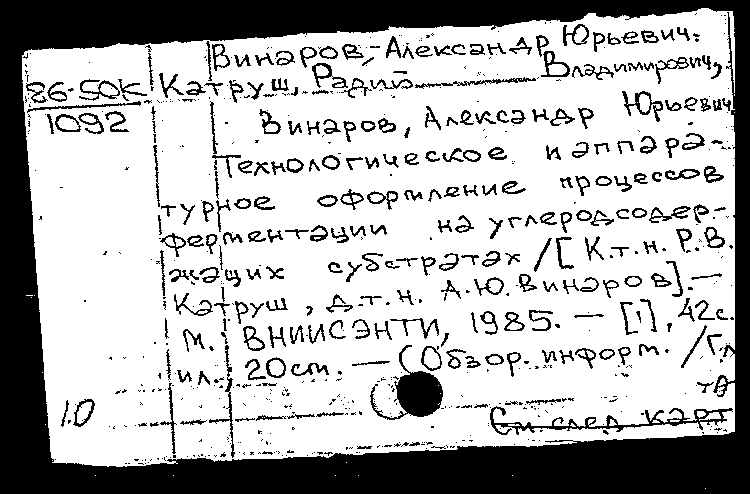 Винаров, Александр Юрьевич.
86-50К Катруш, Радий Владимирович,
1092 Винаров, Александр Юрьевич
Технологическое и аппара-
турное оформление процессов
ферментации на углеродсодер-
жащих субстратах /[К.т.н. Р.В.
Катруш, д.т.н. А.Ю. Винаров].—
М.: ВНИИСЭНТИ, 1985. — [1], 42с.
ил.; 20 cm. — (Обзор. информ. /Гл
1.0
См след карт